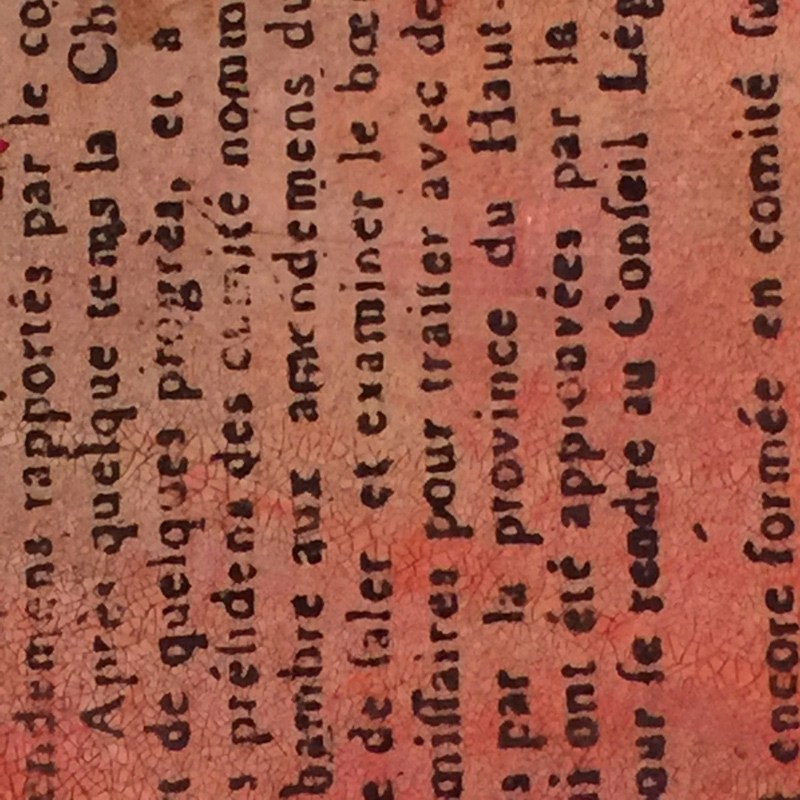 endemens rapportés par le co
Après quelque tems la Ch
t de quelques progrès, et a
s préſidens des comité nomm
bambre aux amendemens du
e de ſaler et examiner le bœu
miſſaires pour traiter avec de
s par la province du Haut-
i ont été approuvées par le
our ſe rendre au Conſeil Lég
encore formée en comité ſu